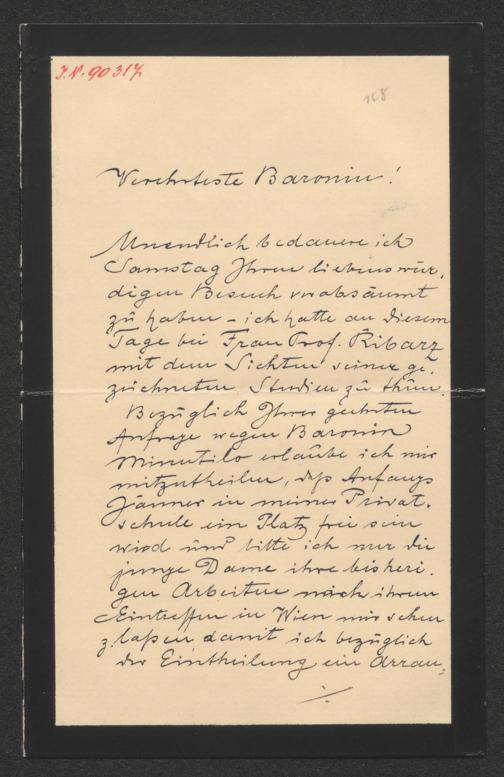 J.N. 90317
168
Verehrteste Baronin!
Unendlich bedauere ich
Samstag Ihren liebenswür-
digen Besuch verabsäumt
zu haben – ich hatte an diesem
Tage bei Frau Prof. Ribarz
mit dem Sichten seiner ge-
zeichneten Studien zu thun.
Bezüglich Ihrer geehrten
Anfrage wegen Baronin
Minutilo erlaube ich mir
mitzutheilen, daß Anfangs
Jänner in meiner Privat-
schule ein Platz frei sein
wird und bitte ich nur die
junge Dame ihre bisheri-
gen Arbeiten nach ihrem
Eintreffen in Wien mir sehen
z. laßen damit ich bezüglich
der Eintheilung ein Arran-
./.